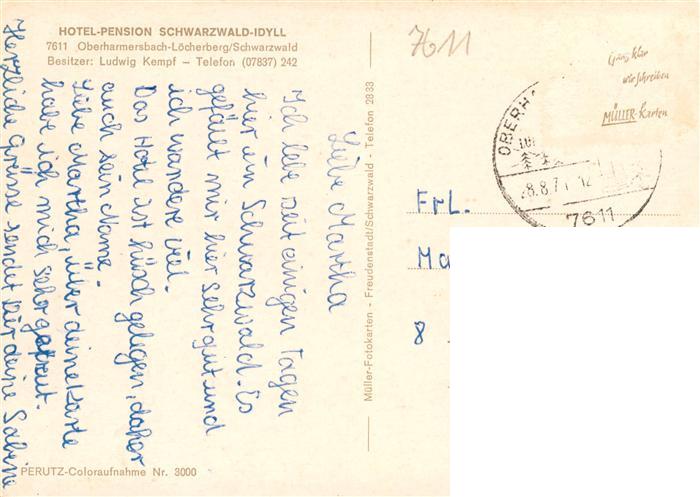 HOTEL-PENSION SCHWARZWALD-IDYLL
7611 Oberharmersbach-Löcherberg/Schwarzwald
Besitzer: Ludwig Kempf – Telefon (07837) 242
Liebe Martha
Ich lebe seit einigen Tagen
hier im Schwarzwald. Es
gefällt mir hier sehr gut und
ich wandere viel.
Das Hotel ist hüsch gelegen, daher
auch sein Name.
Liebe Martha, über deine Karte
habe ich mich sehr gefreut.
Herzliche Grüsse sendet Dir deine Sabine
PERUTZ-Coloraufnahme Nr. 3000
Müller-Fotokarten - Freudenstadt/Schwarzwald - Telefon 2833
7611
Ganz klar
wir schreiben
MÜLLER-Karten
OBERH
LUF
28.8.7 - 12
7611
Frl.
Ma
8